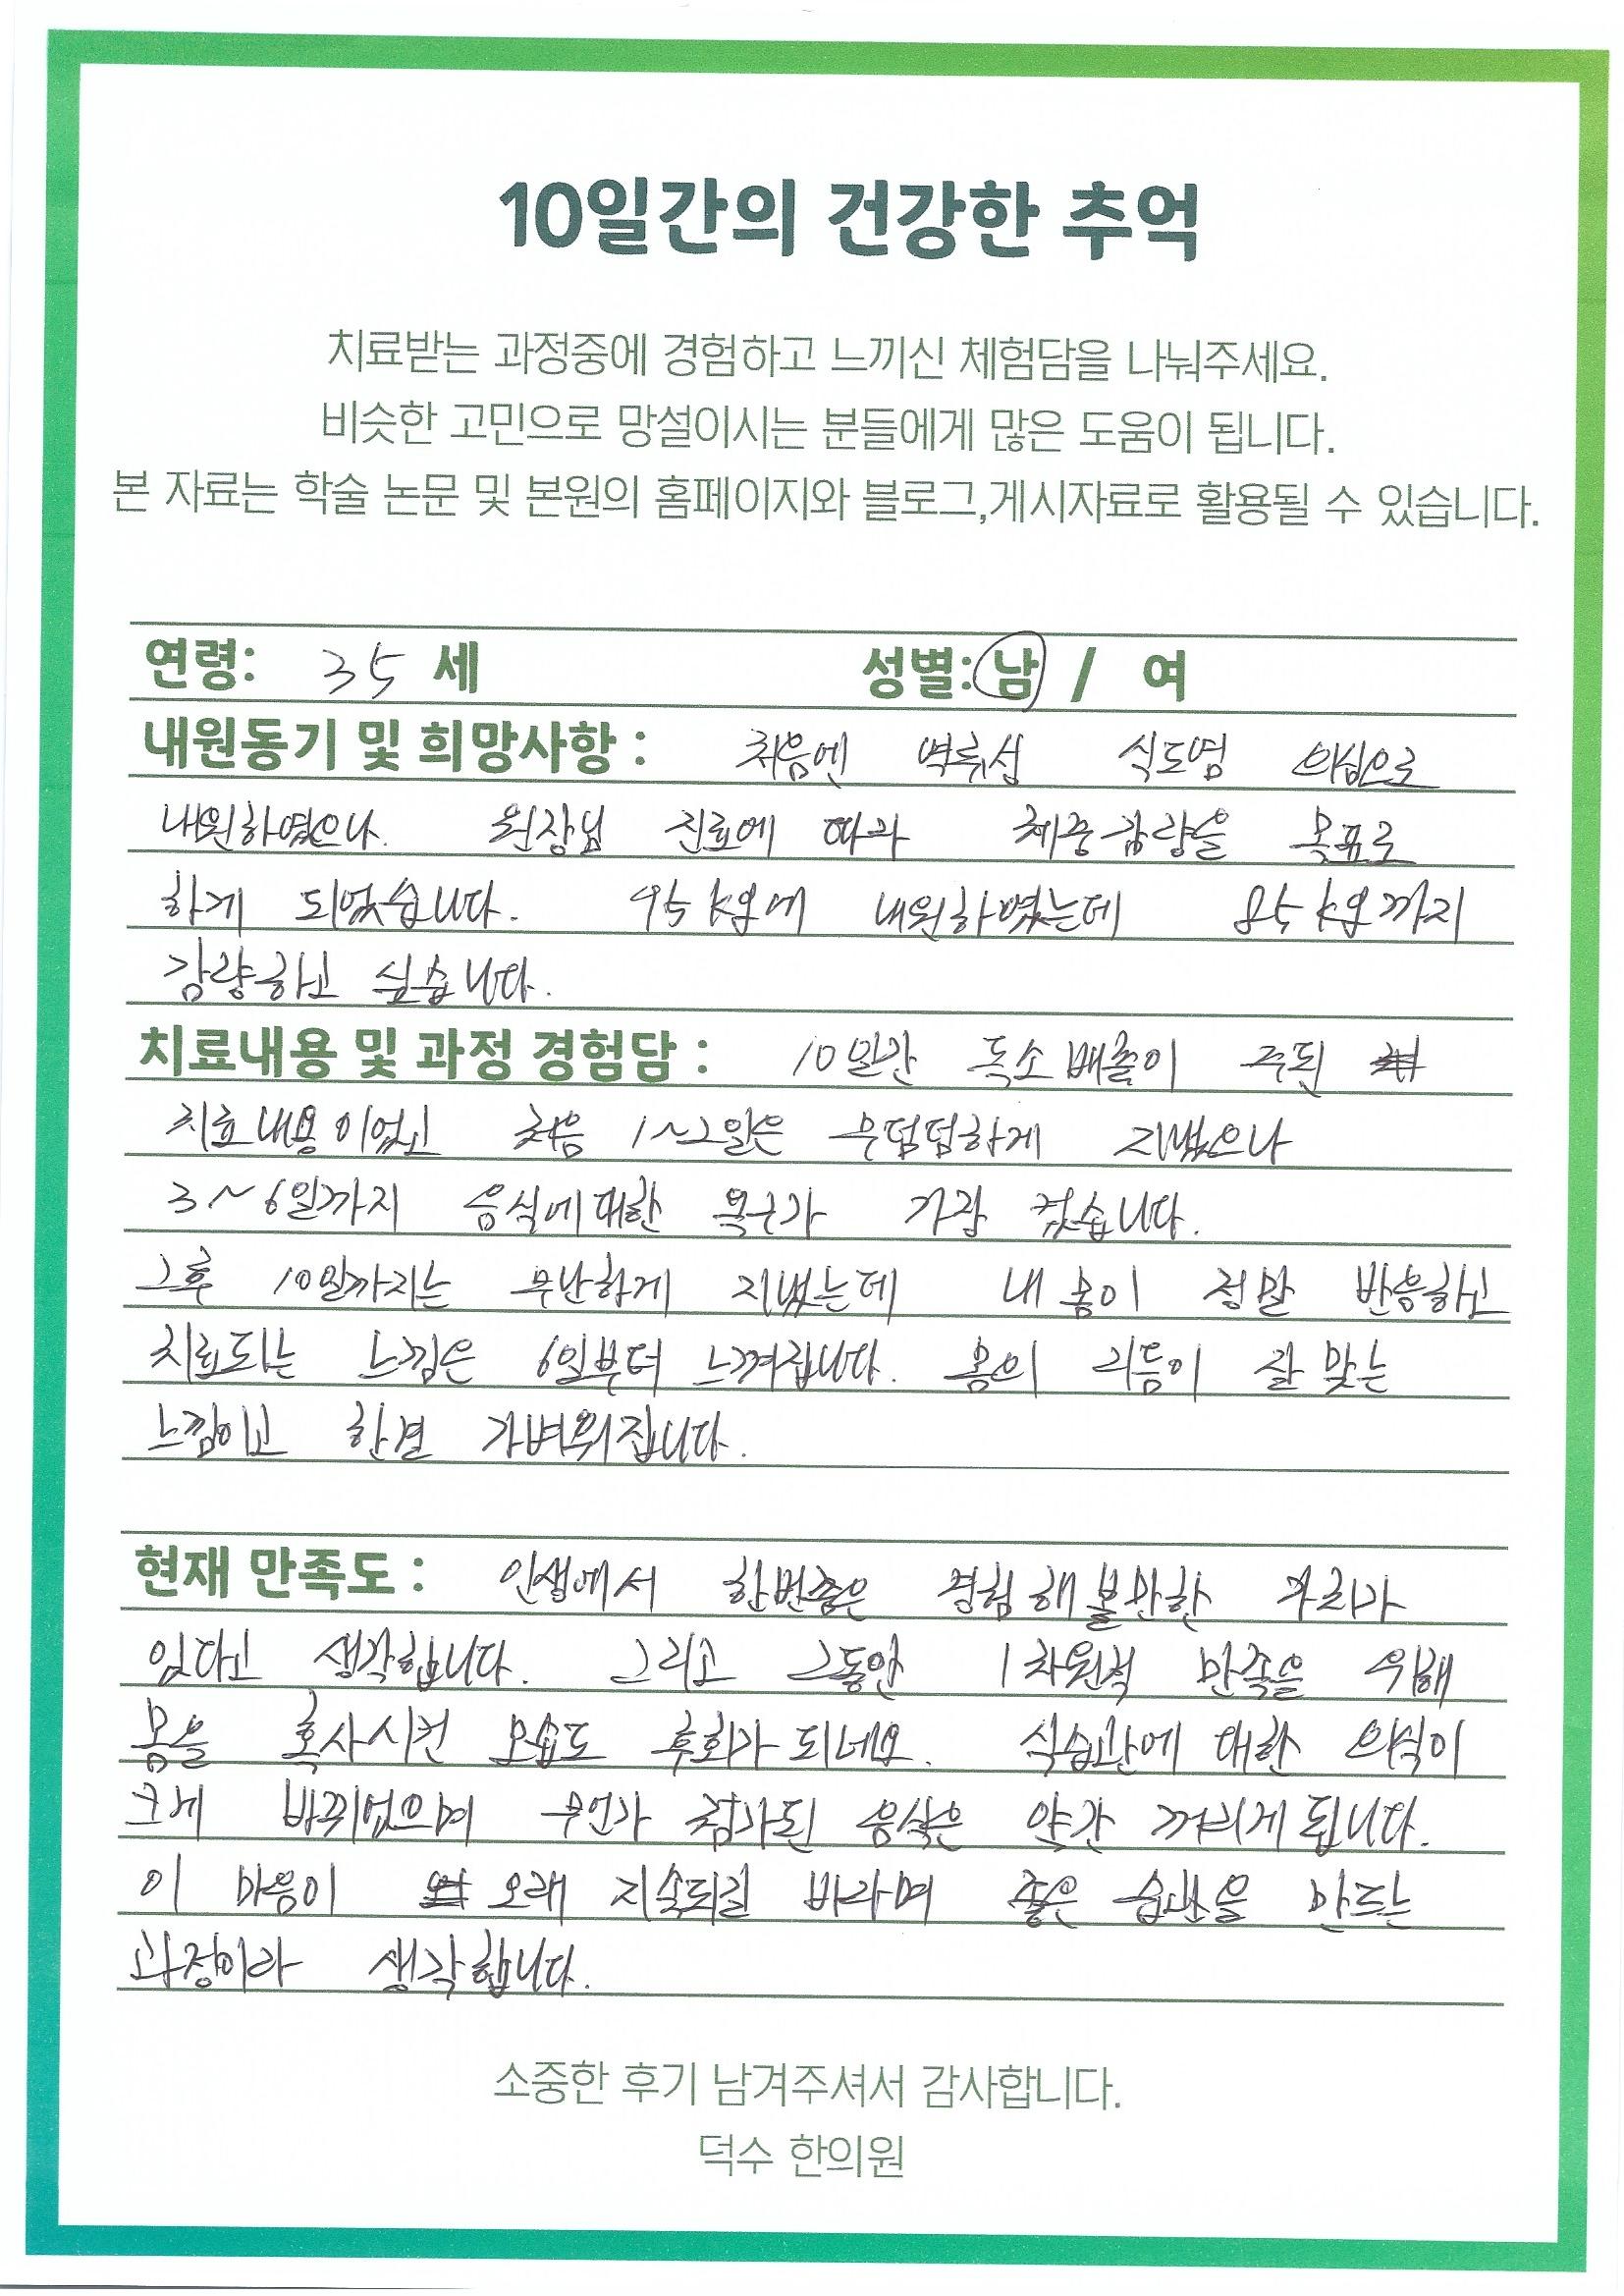 10일간의 건강한 추억
치료받는 과정중에 경험하고 느끼신 체험담을 나눠주세요.
비슷한 고민으로 망설이시는 분들에게 많은 도움이 됩니다.
본 자료는 학술 논문 및 본원의 홈페이지와 블로그,게시자료로 활용될 수 있습니다.
연령: 35 세 성별: 남 / 여
내원동기 및 희망사항 : 처음엔 역류성 식도염 의심으로
내원하였으나. 원장님 진료에 따라 체중감량을 목표로
하게 되었습니다. 95kg에 내원하였는데 85kg까지
감량하고 싶습니다.
치료내용 및 과정 경험담 : 10일간 독소배출이 주된
치료내용이었고 처음 1~2일은 무덤덤하게 지냈으나
3~6일까지 음식에대한 욕구가 가장 컸습니다.
그후 10일까지는 무난하게 지냈는데 내 몸이 정말 반응하고
치료되는 느낌은 6일부터 느껴집니다. 몸의 리듬이 잘 맞는
느낌이고 한결 가벼워집니다.
현재 만족도 : 인생에서 한번쯤은 경험해볼만한 가치가
있다고 생각합니다. 그리고 그동안 1차원적 만족을 위해
몸을 혹사시킨 모습도 후회가 되네요. 식습관에 대한 의식이
크게 바뀌었으며 무언가 첨가된 음식은 약간 꺼리게 됩니다.
이 마음이 오래 지속되길 바라며 좋은 습관을 만드는
과정이라 생각합니다.
소중한 후기 남겨주셔서 감사합니다.
덕수 한의원